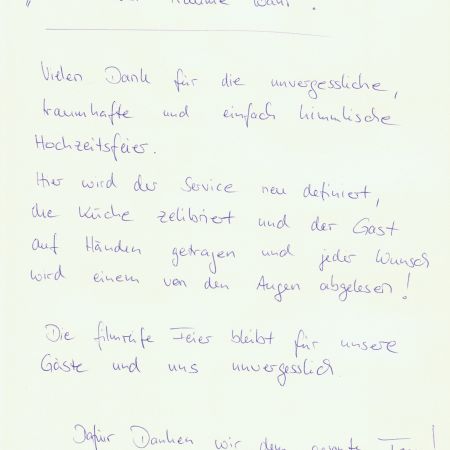 Träume wahr.
Vielen Dank für die unvergessliche,
traumhafte und einfach himmlische
Hochzeitsfeier.
Hier wird der Service neu definiert,
die Küche zelibriert und der Gast
auf Händen getragen und jeder Wunsch
wird einem von den Augen abgelesen!
Die filmreife Feier bleibt für unsere
Gäste und uns unvergesslich.
Dafür Danken wir dem